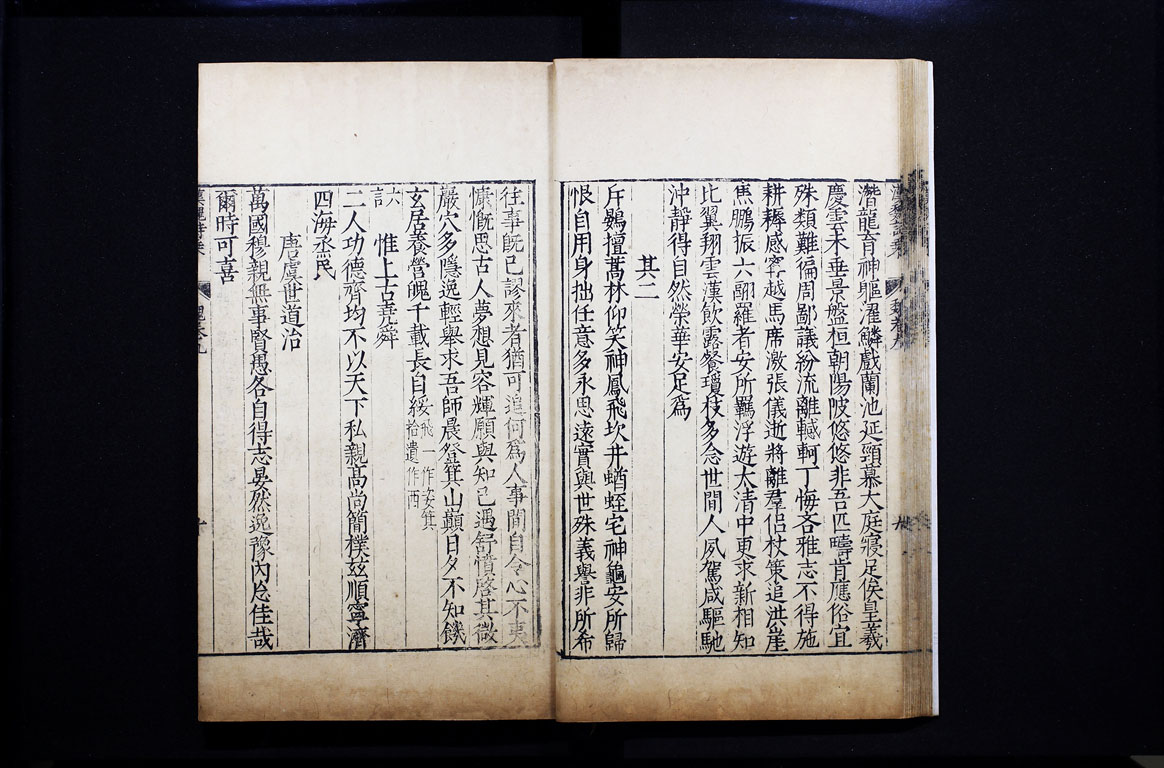 潛龍育神軀濯鱗戲蘭池延頸慕大庭寢足俟皇羲
慶雲未垂景盤桓朝陽陂悠悠非吾匹疇肯應俗宜
殊類難徧周鄙議紛流離轗軻丁悔吝雅志不得施
耕耨感寗越馬席激張儀逝將離羣侣杖策追洪崖
焦鵬振六翮羅者安所羈浮遊太清中更求新相知
比翼翔雲漢飲露餐瓊枝多念世間人夙駕咸驅馳
沖靜得自然榮華安足爲
其二
斥鷃擅蒿林仰笑神鳳飛坎井蝤蛭宅神龜安所歸
恨自用身拙任意多永思遠實與世殊義譽非所希
往事既已謬來者猶可追何爲人事間自令心不夷
慷慨思古人夢想見容輝願與知己遇舒憤啓其微
巖穴多隱逸輕舉求吾師晨登箕山巔日夕不知饑
玄居養營魄千載長自綏飛一作姿箕
拾遺作西
六言
惟上古堯舜
二人功德齊均不以天下私親高尚簡樸玆順寧濟
四海烝民
唐虞世道治
萬國穆親無事賢愚各自得志晏然逸豫內忘佳哉
爾時可喜